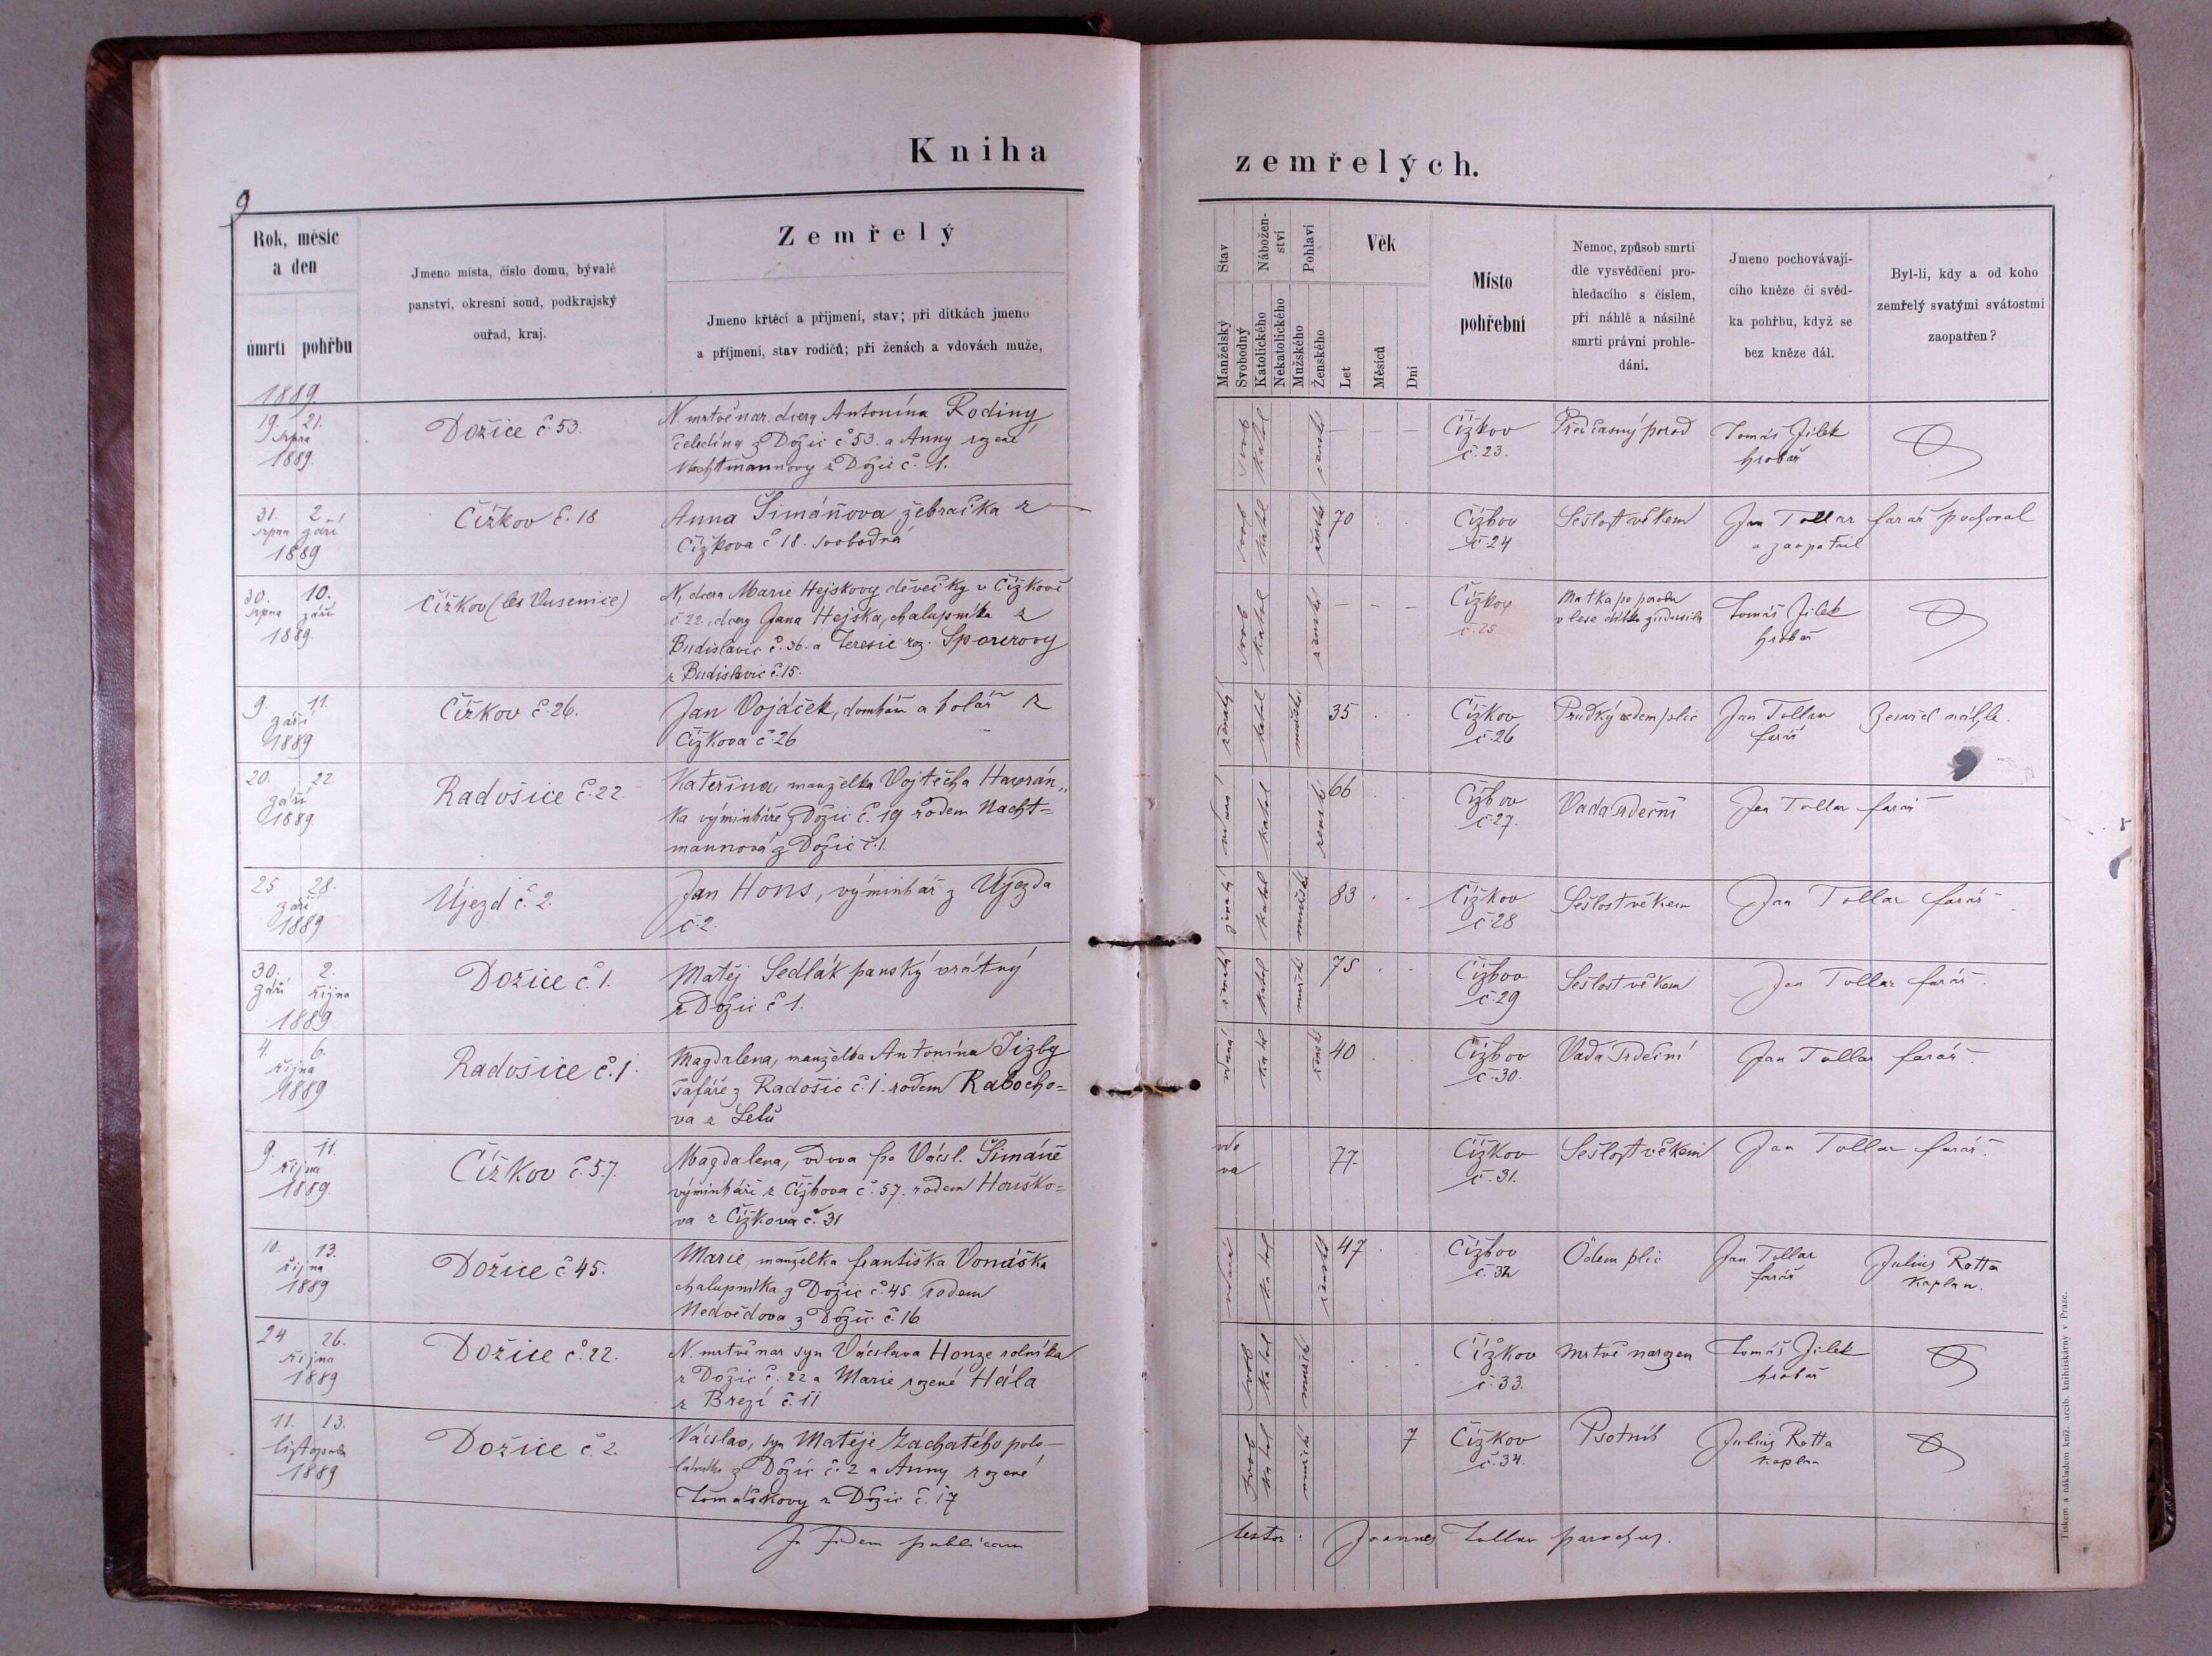 Kniha
zemřelých.
9
Rok, měsíc
a den
úmrtí
pohřbu
Jmeno místa, číslo domu, bývalé
panství, okresní soud, podkrajský
ouřad, kraj.
Zemřelý
Jmeno křtěcí a příjmení, stav; při dítkách jmeno
a příjmení, stav rodičů; při ženách a vdovách muže,
Stav
Manželský
Svobodný
Nábožen-
ství
Katolického
Nekatolického
Pohlaví
Mužského
Ženského
Věk
Let
Měsíců
Dní
Místo
pohřební
Nemoc, způsob smrti
dle vysvědčení pro-
hledacího s číslem,
při náhlé a násilné
smrti právní prohle-
dání.
Jmeno pochovávají-
cího kněze či svěd-
ka pohřbu, když se
bez kněze dál.
Byl-li, kdy a od koho
zemřelý svatými svátostmi
zaopatřen?
1889.
19. 21.
srpna
1889.
Dožice č. 53.
N. mrtvě nar. dcera Antonína Rodiny
čeledína z Dožic č. 53. a Anny rozené
Nachtmannovy z Dožic č. 1.
svob katol ženské — — —
Čížkov
č. 23.
Předčasný porod
Tomáš Jílek
hrobař
31. 2
srpna září
1889
Čížkov č. 18
Anna Šimáňova žebračka z
Čížkova č. 18. svobodná
svob katol ženské 70 . .
Čížkov
č. 24
Sešlost věkem
Jan Tollar farář pochoval
a zaopatřil
30. 10.
srpna září
1889.
Čížkov (les Vusenice)
N, dcera Marie Hejskovy děvečky v Čížkově
č 22, dcery Jana Hejska, chalupníka z
Budislavic č. 36. a Teresie roz. Sporerovy
z Budislavic č. 15.
svob katol ženské — — —
Čížkov
č. 25
Matka po porodu
v lese dítko zadusila
Tomáš Jílek
hrobař
9. 11.
září
1889
Čížkov č. 26.
Jan Vojáček, domkář a kolář z
Čížkova č. 26
ženatý katol mužské 35 . .
Čížkov
č. 26
Prudký edem plic
Jan Tollar
farář
Zemřel náhle.
20. 22.
září
1889
Radošice č. 22.
Kateřina, manželka Vojtěcha Havrán„
ka výminkáře z Dožic č. 19 rodem Nacht=
mannová z Dožic č. 1.
vdaná katol ženské 66 . .
Čížkov
č. 27.
Vada srdeční
Jan Tollar farář
25 28.
září
1889
Újezd č. 2.
Jan Hons, výminkář z Újezda
č. 2.
ženatý katol mužské 83 . .
Čížkov
č. 28
Sešlost věkem
Jan Tollar farář
30. 2.
září října
1889
Dožice č. 1.
Matěj Sedlák panský vrátný
z Dožic č. 1.
ženatý katol mužské 75 . .
Čížkov
č. 29
Sešlost věkem
Jan Tollar farář.
4. 6.
října
1889
Radošice č. 1.
Magdalena, manželka Antonína Jizby
šafáře z Radošic č. 1. rodem Rabocho=
va z Letů
vdaná katol ženské 40 . .
Čížkov
č. 30.
Vada srdeční
Jan Tollar farář.
9. 11.
října
1889.
Čížkov č. 57.
Magdalena, vdova po Václ. Šimáně
výminkáři z Čížkova č. 57. rodem Houško=
va z Čížkova č. 31
vdo
va
77.
Čížkov
č. 31.
Sešlost věkem
Jan Tollar farář.
10. 13.
října
1889
Dožice č. 45.
Marie, manželka františka Vonáška
chalupníka z Dožic č. 45. rodem
Nedvědova z Dožic č. 16
vdaná katol ženské 47 . .
Čížkov
č. 32
Ödem plic
Jan Tollar
farář
Julius Rotta
kaplan.
24 26.
října
1889
Dožice č. 22.
N. mrtvě nar syn Václava Honze rolníka
z Dožic č. 22 a Marie rozené Hála
z Brezí č. 11
svob katol mužské . . .
Čížkov
č. 33.
Mrtvě narozen
Tomáš Jílek
hrobař
11. 13.
listopadu
1889
Dožice č. 2.
Václav, syn Matěje Zachatého polo-
láníka z Dožic č. 2 a Anny rozené
Tomáškovy z Dožic č. 17
svob katol mužské 7
Čížkov
č. 34.
Psotník
Julius Rotta
kaplan
In fidem publicam
testor: Joannes Tollar parochus.
Tiskem a nákladem kníž. arcib. knihtiskárny v Praze.